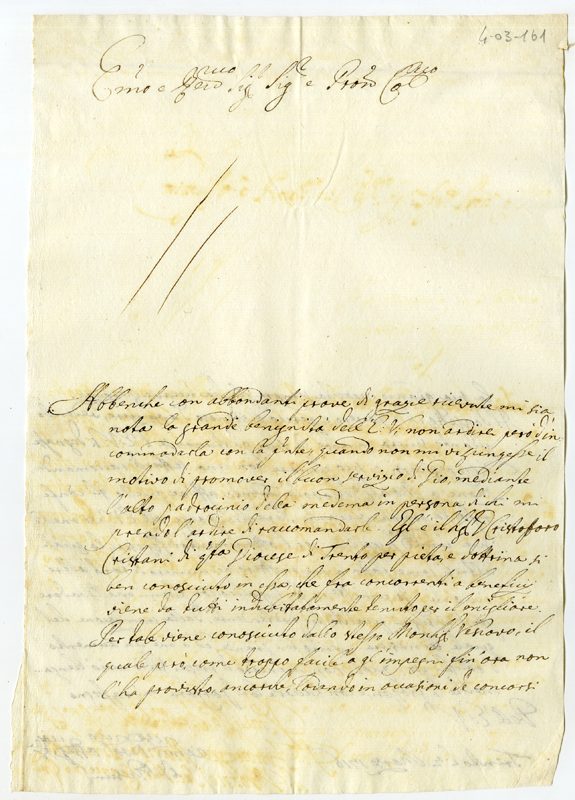 4-03-161
Em.mo e Rev.mo Sig.r Sig.r e Pron Col.mo
Abbenche con abbondanti prove di grazie ricevute mi sia
nota la grande benignità dell'E. V. non ardirei però d'in
commodarla con la p'nte, quando non mi vi spingesse il
motivo di promover il buon servizio di Dio, mediante
l'alto padrocinio della medema in persona di chi mi
prendo l'ardire di raccomandarle. Egl'è il Sig.r D. Cristofforo
Cristani di q'sta Diocese di Trento per pietà, e dottrina si
ben conosciuto in essa, che fra concorrenti a benefici
viene da tutti indubitatamente tenuto per il migliore.
Per tale viene conosciuto dallo stesso Mons.r Vescovo, il
quale però come troppo facile a gl'impegni fin'ora non
l'ha provisto, ancorche, in occasioni de concorsi